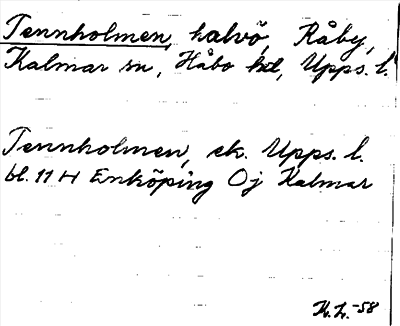 Tennholmen, halvö, Råby,
Kalmar sn, Håbo hd, Upps. l.
Tennholmen, ek. Upps. l.
bl. 11 H Enköping Oj Kalmar
K. L. -58